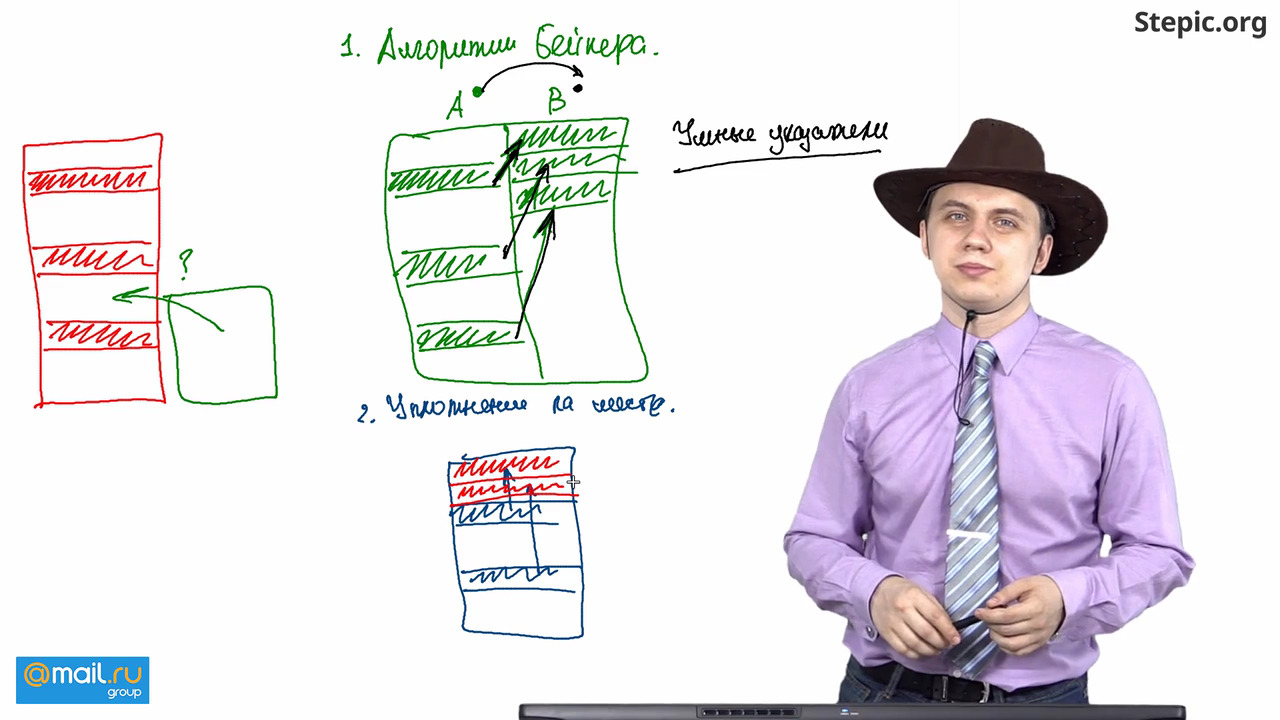 Stepic.org
1. Алгоритм Бейкера.
A B
Умные указатели
?
2. Уплотнение на месте.
@mail.ru
group